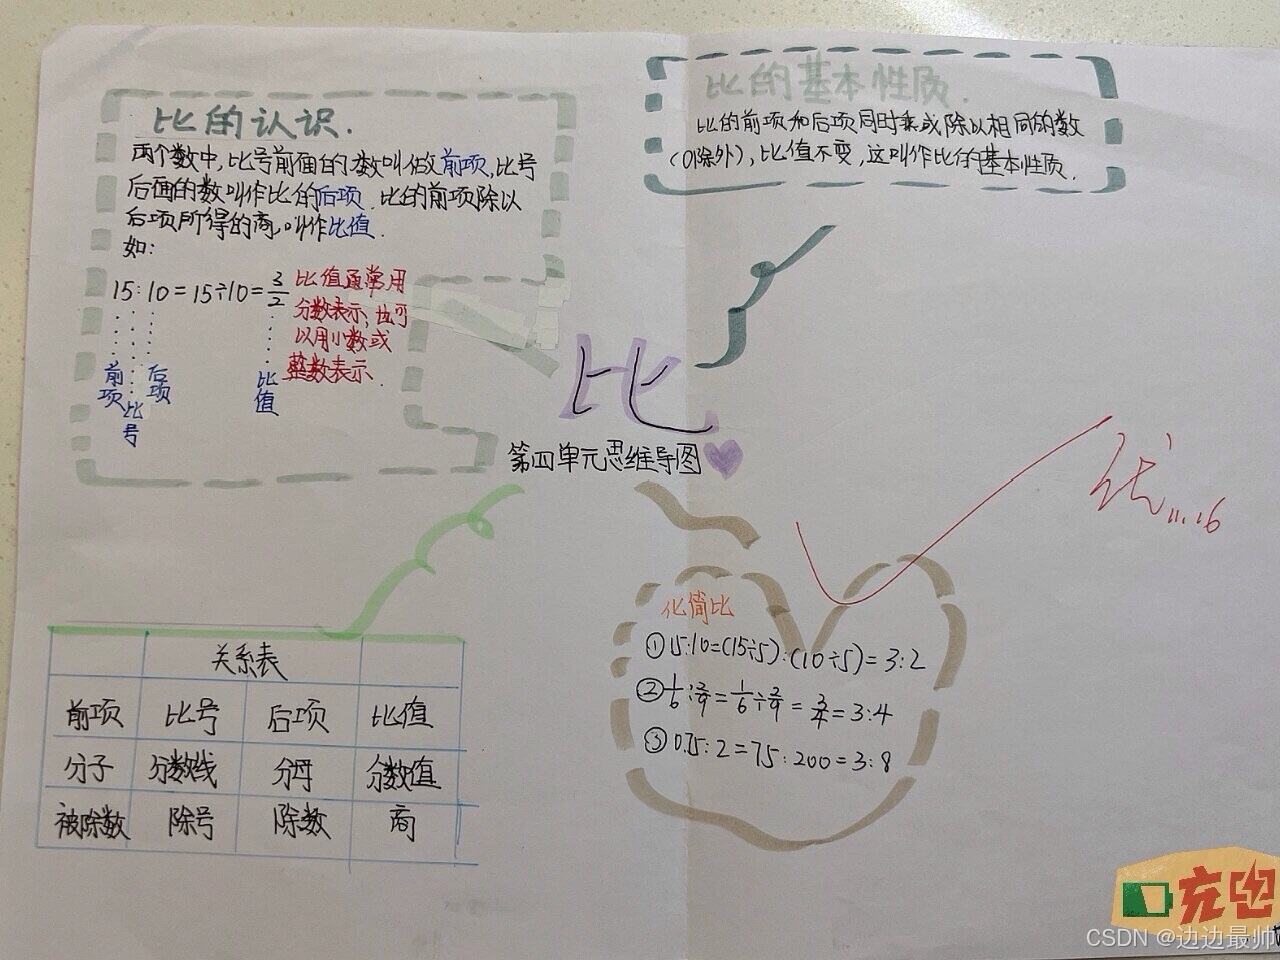 比的认识.
两个数中,比号前面的数叫做前项,比号
后面的数叫作比的后项.比的前项除以
后项所得的商,叫作比值.
如:
15:10=15÷10=3/2
比值通常用
分数表示,也可
以用小数或
整数表示.
前项
比号
后项
比值
比的基本性质.
比的前项和后项同时乘或除以相同的数
(0除外),比值不变,这叫作比的基本性质.
比
第四单元思维导图
优
11.16
关系表
前项 比号 后项 比值
分子 分数线 分母 分数值
被除数 除号 除数 商
化简比
①15:10=(15÷5):(10÷5)=3:2
②1/6:2/9=1/6÷2/9=3/4=3:4
③0.75:2=75:200=3:8
充电
CSDN @边边最帅